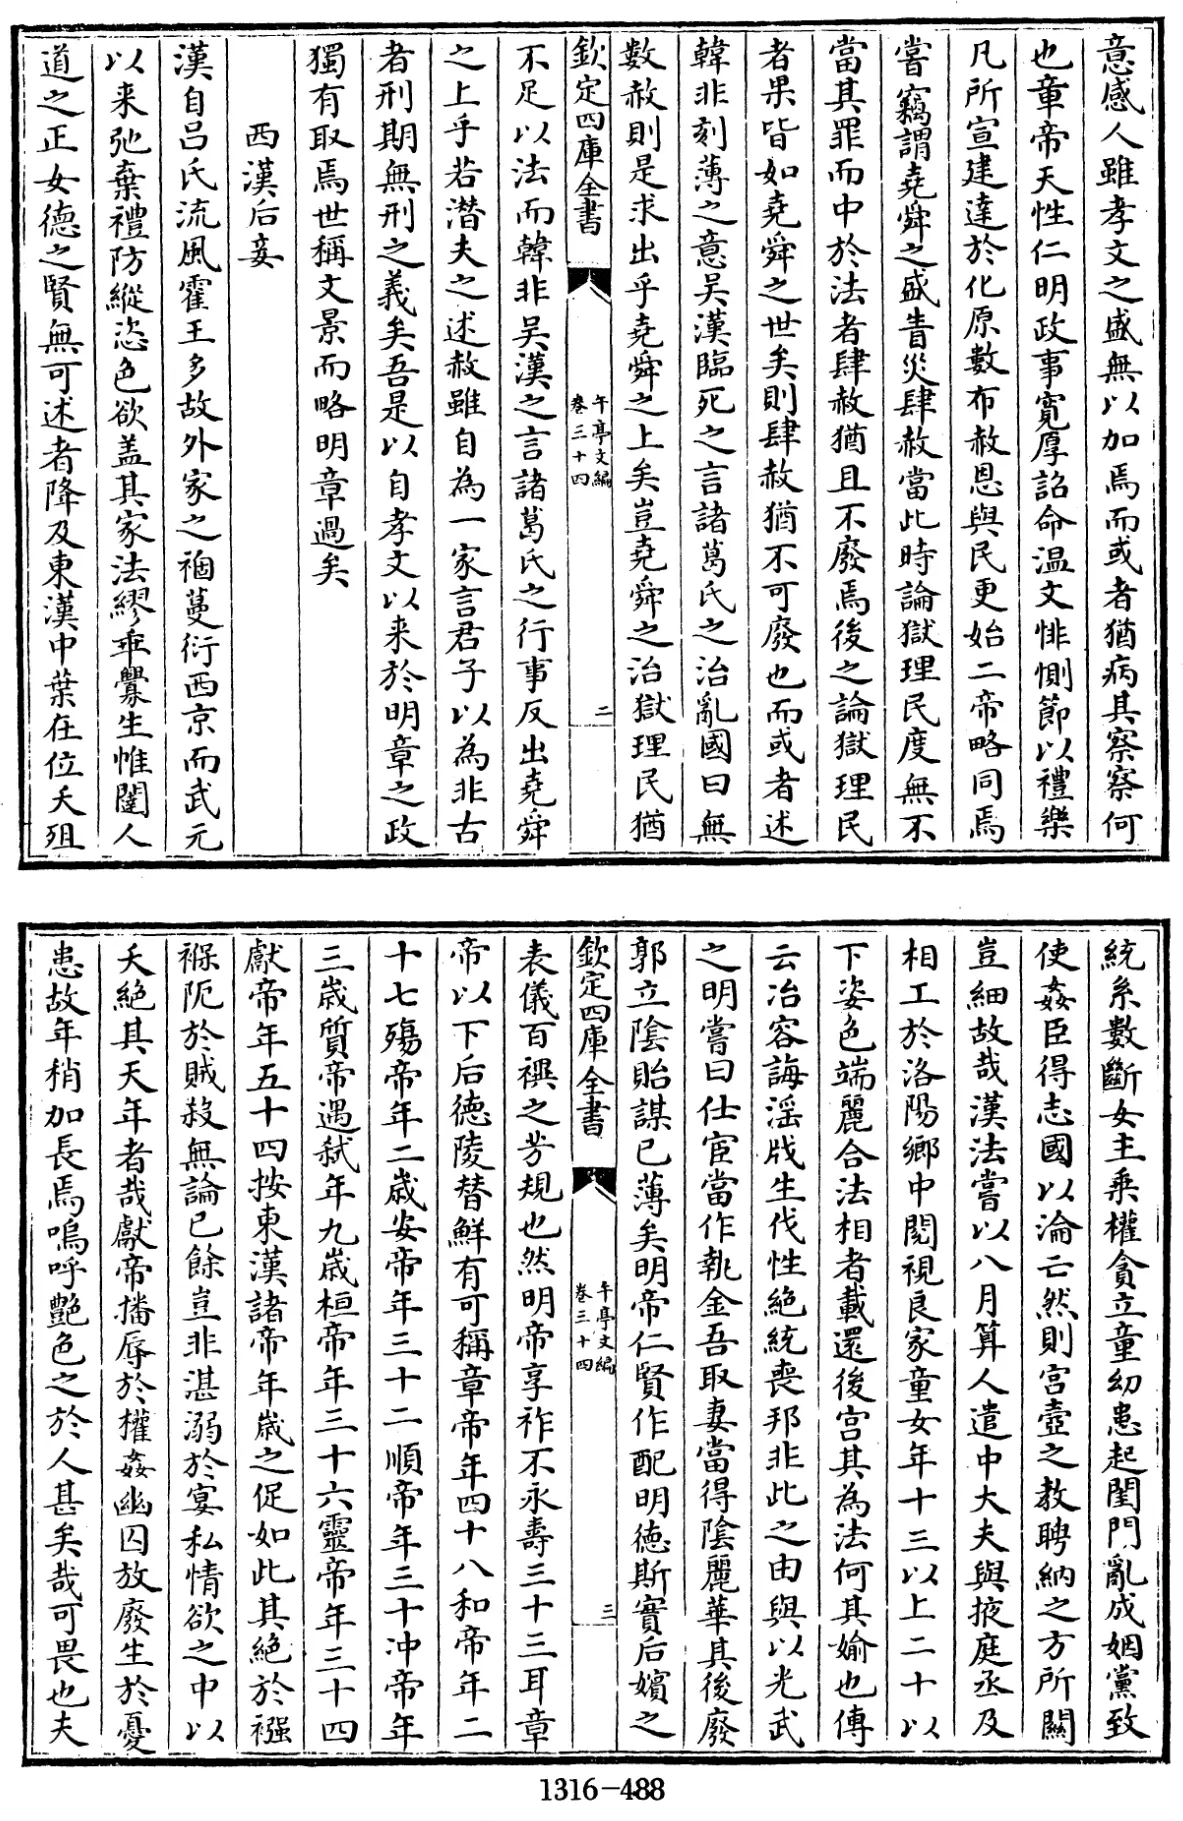 意感人雖孝文之盛無以加焉而或者猶病其察察何
也章帝天性仁明政事寛厚詔命温文悱惻節以禮樂
凡所宣建達於化原數布赦恩與民更始二帝略同焉
嘗竊謂堯舜之盛眚災肆赦當此時論獄理民度無不
當其罪而中於法者肆赦猶且不廢焉後之論獄理民
者果皆如堯舜之世矣則肆赦猶不可廢也而或者述
韓非刻薄之意吴漢臨死之言諸葛氏之治亂國曰無
數赦則是求出乎堯舜之上矣豈堯舜之治獄理民猶
欽定四庫全書
午亭文編
卷三十四
二
不足以法而韓非吴漢之言諸葛氏之行事反出堯舜
之上乎若潜夫之述赦雖自為一家言君子以為非古
者刑期無刑之義矣吾是以自孝文以来於明章之政
獨有取焉世稱文景而略明章過矣
西漢后妾
漢自吕氏流風霍王多故外家之禍蔓衍西京而武元
以来弛棄禮防縱恣色欲盖其家法繆乖釁生帷闥人
道之正女德之賢無可述者降及東漢中葉在位夭殂
統系數斷女主乘權貪立童幼患起閨門亂成姻黨致
使姦臣得志國以淪亡然則宫壼之教聘納之方所闗
豈細故哉漢法嘗以八月算人遣中大夫與掖庭丞及
相工於洛陽鄉中閲視良家童女年十三以上二十以
下姿色端麗合法相者載還後宫其為法何其媮也傳
云冶容誨淫戕生伐性絶統喪邦非此之由與以光武
之明嘗曰仕宦當作執金吾取妻當得陰麗華其後廢
郭立陰貽謀已薄矣明帝仁賢作配明德斯實后嬪之
欽定四庫全書
午亭文編
卷三十四
三
表儀百禩之芳規也然明帝享祚不永壽三十三耳章
帝以下后德陵替鮮有可稱章帝年四十八和帝年二
十七殤帝年二歲安帝年三十二順帝年三十冲帝年
三歲質帝遇弑年九歲桓帝年三十六靈帝年三十四
獻帝年五十四按東漢諸帝年歲之促如此其絶於襁
褓阨於賊殺無論已餘豈非湛溺於宴私情欲之中以
夭絶其天年者哉獻帝播辱於權姦幽囚放廢生於憂
患故年稍加長焉嗚呼艷色之於人甚矣哉可畏也夫
1316-488